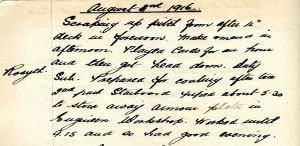 August 2nd 1916.
Scraping up pitch from after 4"
deck in forenoon. Make & mend in
afternoon. Played Cards for an hour
Rosyth. and then got head down. duty
Sub. Prepared for coaling after tea
and Starboard piped about 5-30
to stow away armour plate in
Engineers Workshop. Worked until
9.15 and so had good evening.